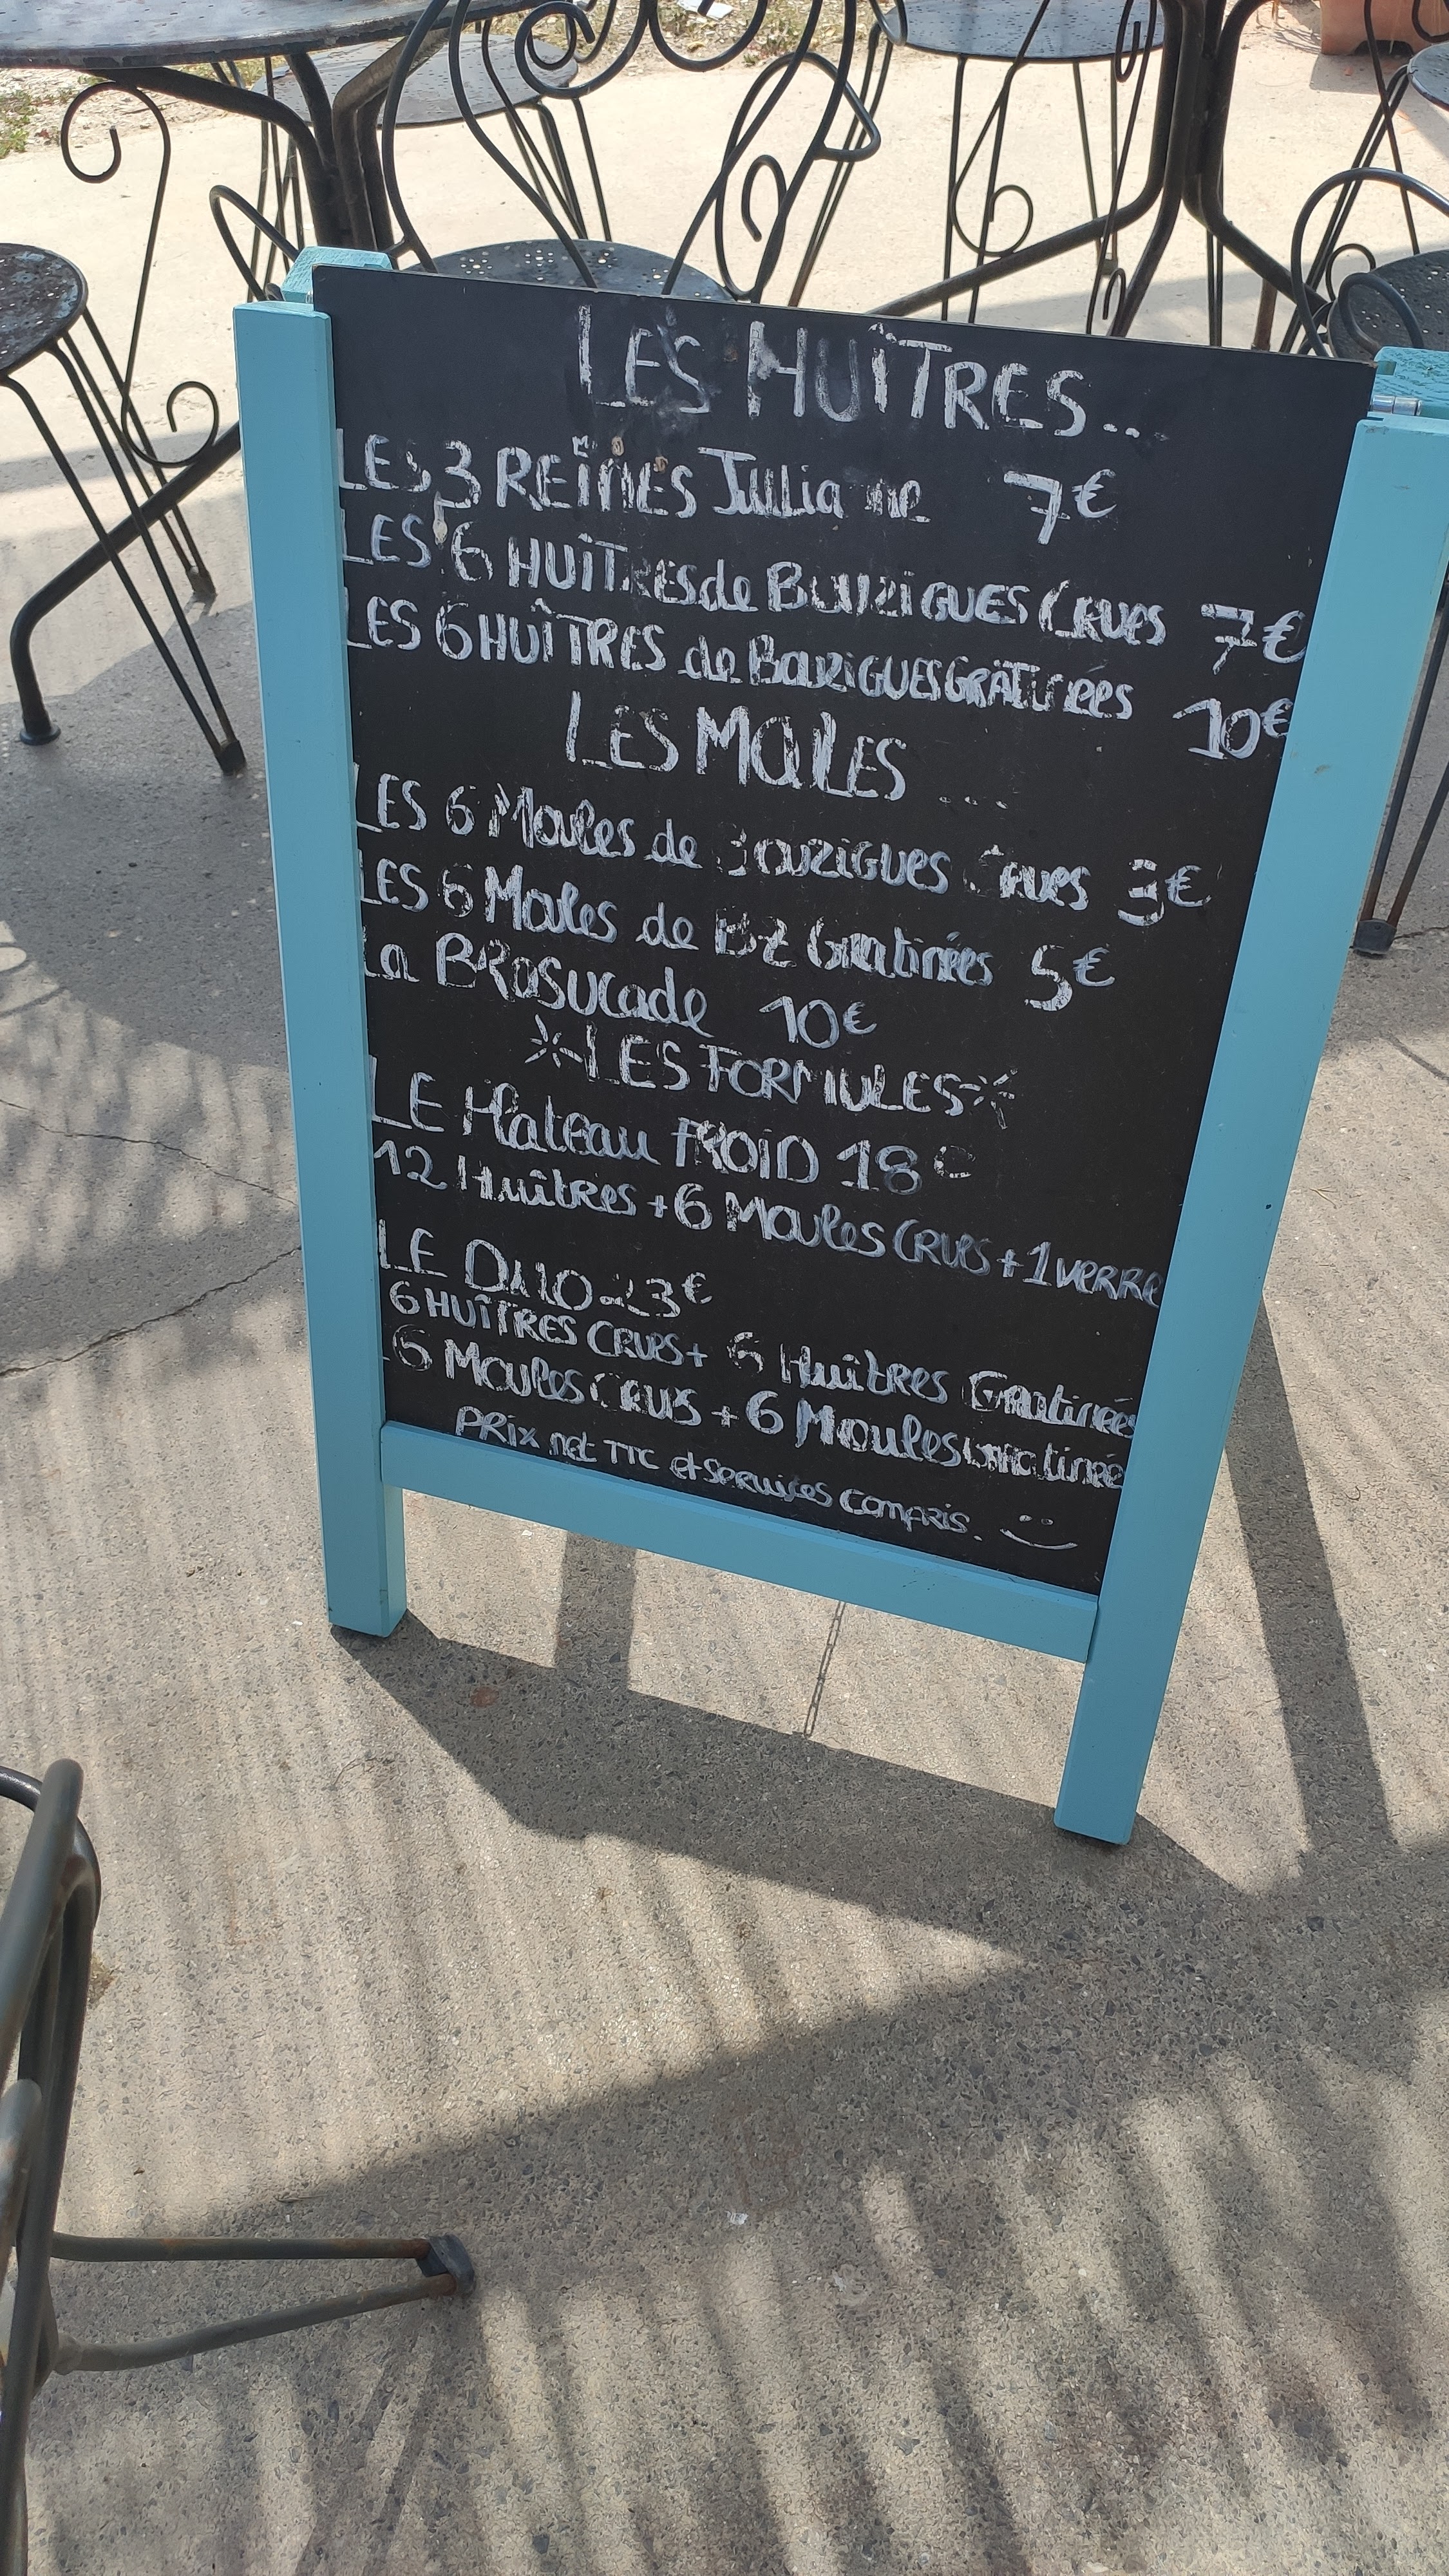 LES HUÎTRES...
LES 3 REINES Juliane 7€
LES 6 HUÎTRES de BOUZIGUES CRUES 7€
LES 6 HUÎTRES de BOUZIGUES GRATINÉES 10€
LES MOULES ...
LES 6 Moules de BOUZIGUES CRUES 3€
LES 6 Moules de BZ Gratinées 5€
La BRASUCADE 10€
LES FORMULES
LE Plateau FROID 18€
12 Huîtres + 6 Moules CRUES + 1 VERRE
LE DUO 23€
6 HUÎTRES CRUES + 6 Huîtres Gratinées
6 Moules CRUES + 6 Moules Gratinées
PRix net TTC et services compris.